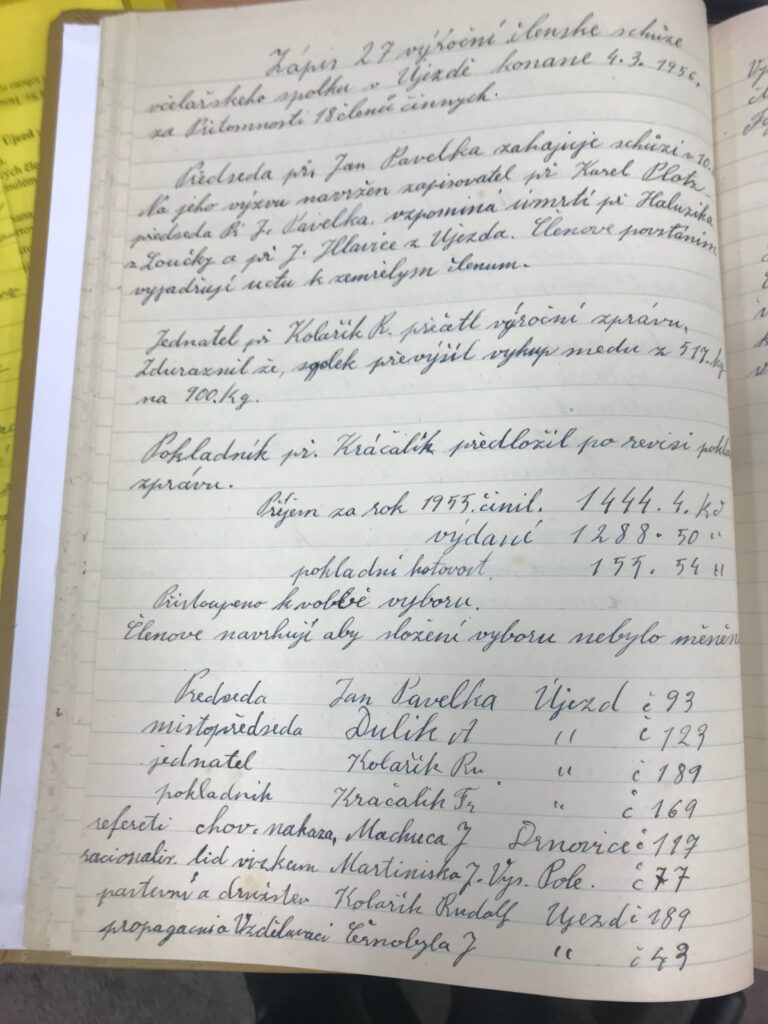 Zápis 27 výroční členske schůze
včelařskeho spolku v Ujezdě konane 4.3. 1956.
za Přitomnosti 18 členů činnych.
Předseda př. Jan Pavelka zahajuje schůzi v 10.
Na jeho výzvu navržen zapisovatel př Karel Plotz.
předseda Př J. Pavelka. vzpominá úmrtí př Haluzika
z Loučky a př J. Hlavice z Ujezda. Členove povstáním
vyjadřují uctu k zemřelym členum.
Jednatel př Kolařik R. přečetl výroční zprávu,
Zduraznil že, spolek převýšil vykup medu z 517. kg
na 900. Kg.
Pokladník př. Kráčalik předložil po revisi pokla
zprávu.
Přijem za rok 1955. činil. 1444. 4. Kč
výdaní 1288. 50 "
pokladní hotovost. 155. 54 "
Přistoupeno k volbě vyboru.
Členove navrhují aby složení vyboru nebylo měněn
Předseda Jan Pavelka Újezd č 93
mistopředseda Dulik A " č 123
jednatel Kolařik Ru " č 189
pokladnik Kráčalik Fr " č 169
refereti chov. nakaza, Machuca J Drnovice č 117
racionalis. lid vizkum Martiniska J. Vys. Pole. č 77
pastevní a družstev Kolařik Rudolf Ujezd č 189
propagacni a Vzdělavaci Černobyla J " č 43